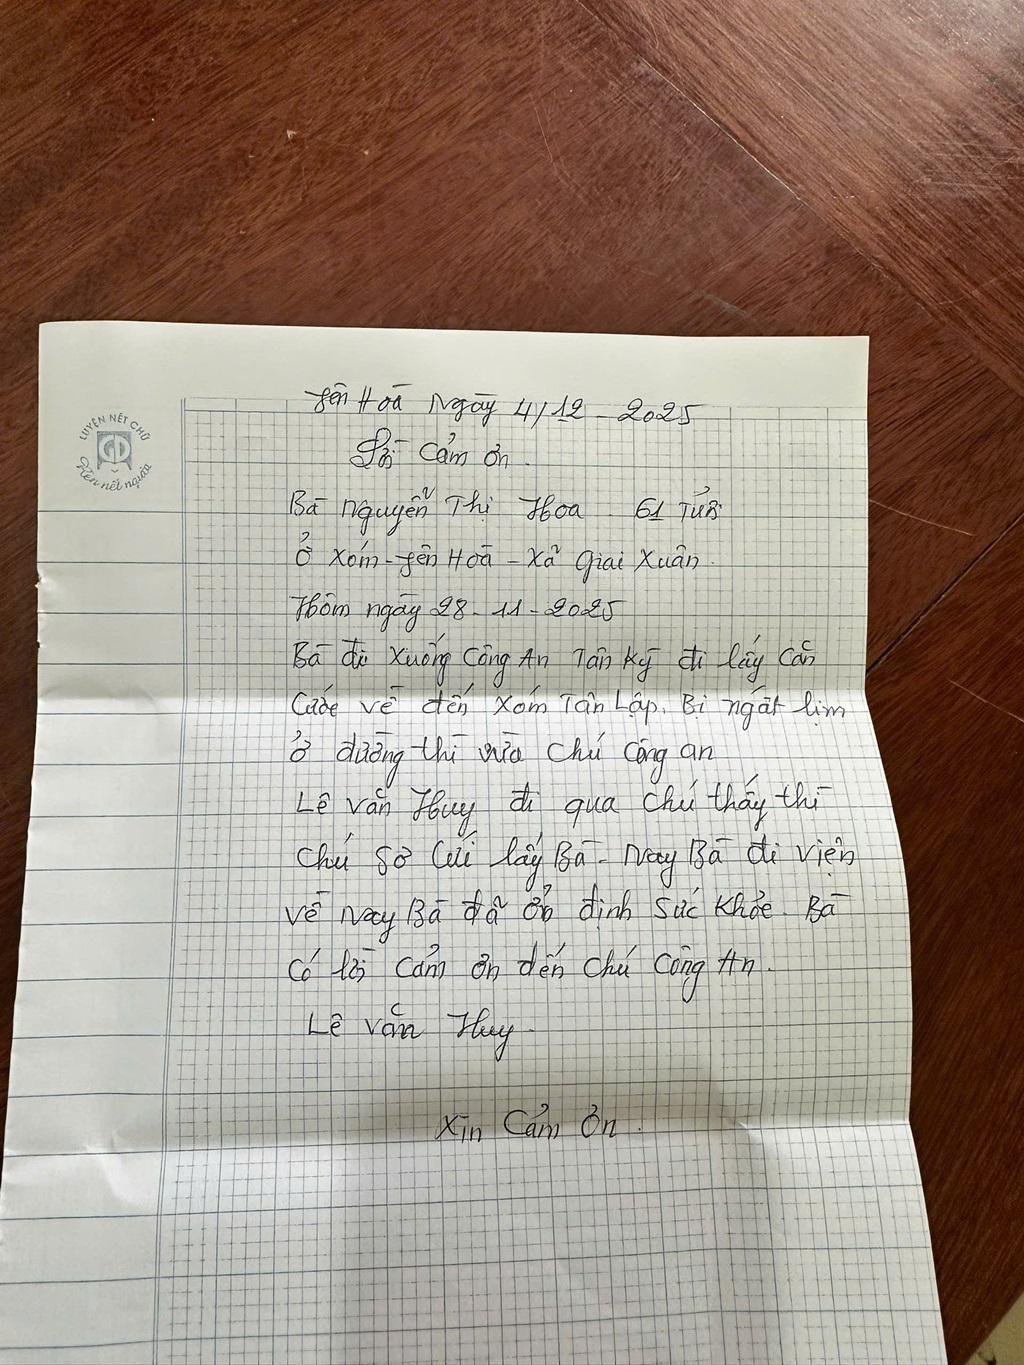 LUYỆN NẾT CHỮ
GD
Rèn nết người
Yên Hoà Ngày 4/12-2025
Lời Cảm ơn.
Bà Nguyễn Thị Hoa 61 Tuổi
Ở Xóm-Yên Hoà-Xã Giai Xuân.
Hôm ngày 28-11-2025
Bà đi Xuống Công An Tân Kỳ đi lấy Căn
Cước về đến Xóm Tân Lập. Bị ngất lịm
ở đường thì vừa Chú Công an
Lê Văn Huy đi qua Chú thấy thì
Chú Sơ Cứi lấy Bà- Nay Bà đi viện
về Nay Bà đã ổn định Sức Khỏe. Bà
Có lời Cảm ơn đến Chú Công An.
Lê Văn Huy.
Xin Cảm Ơn.